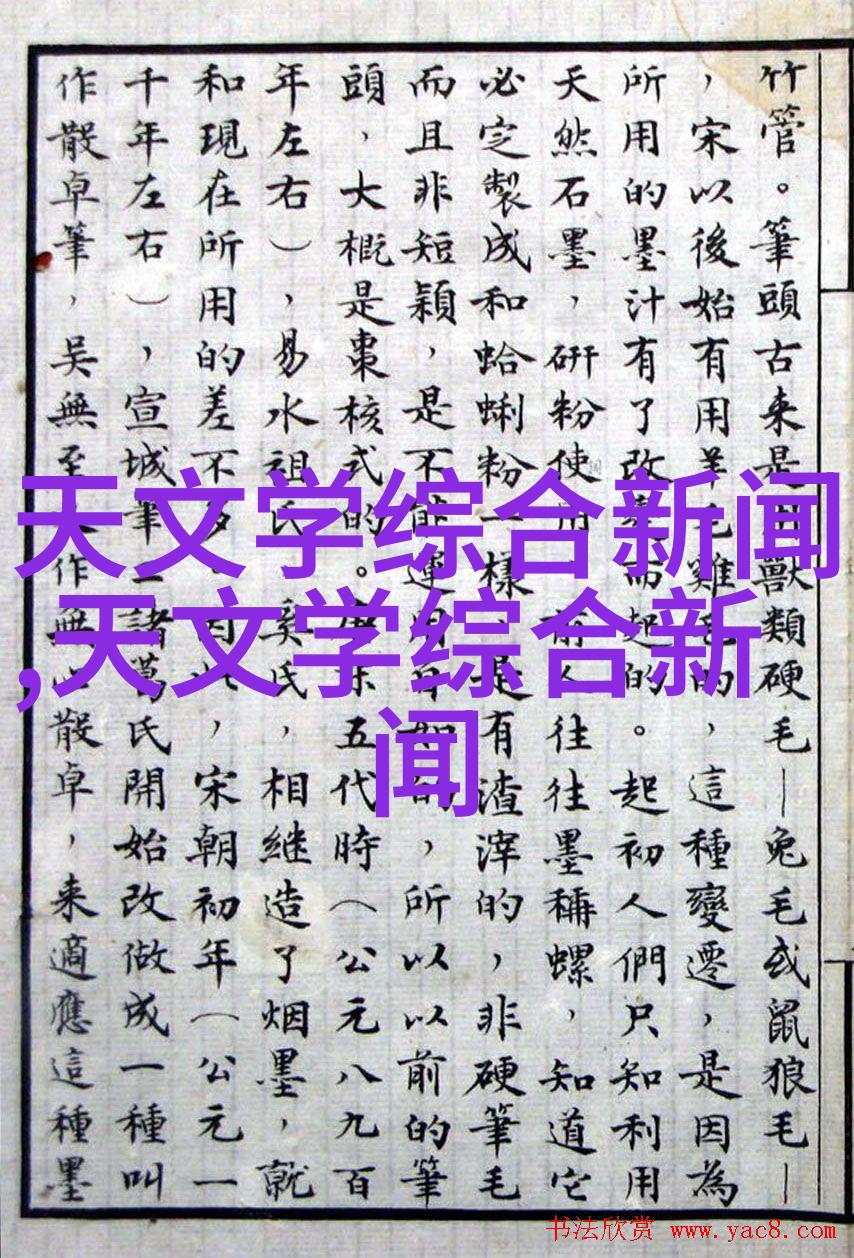 竹管。筆頭古来是獸類硬毛—兔毛或鼠狼毛—
，宋以後始有用羊毛雞的，這種變遷，是因為
所用的墨汁有了改而起的。起初人們只知利用
天然石墨，研粉使用，前人往往墨稱螺，知道它
必定製成和蛤蜊粉一樣，是有渣滓的，非硬筆毛
而且非短穎，是不能運用的，所以以前的筆
頭，大概是棗核式的。五代時（公元八九百
年左右），易水祖氏、奚氏，相继造了烟墨，就
和現在所用的差不多。因此，宋朝初年（公元一
千年左右），宣城筆工諸葛氏開始改做成一種叫
作散卓筆，吴無至作無心散卓，来適應這種墨
天文学综合新闻
,天文学综合新
闻
书法欣赏 www.yac8.com